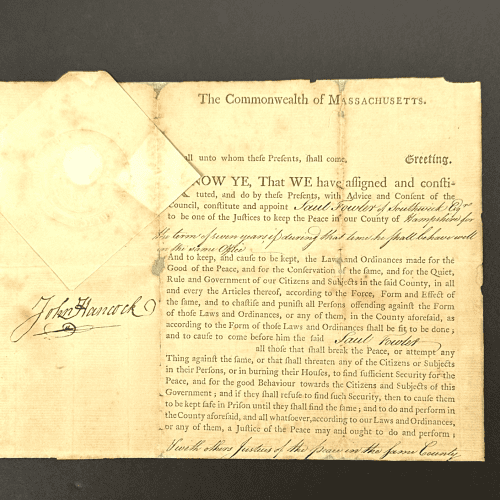 The Commonwealth of MASSACHUSETTS.
all unto whom theſe Preſents, ſhall come, Greeting.
NOW YE, That WE have aſſigned and conſti-
tuted, and do by theſe Preſents, with Advice and Conſent of the
Council, conſtitute and appoint Saul Fowler of Southwick Esqr
to be one of the Juſtices to keep the Peace in our County of Hampshire for
the term of seven years if during that time he shall behave well
in the same Office.
And to keep, and cauſe to be kept, the Laws and Ordinances made for the
Good of the Peace, and for the Conſervation of the ſame, and for the Quiet,
Rule and Government of our Citizens and Subjects in the ſaid County, in all
and every the Articles thereof, according to the Force, Form and Effect of
the ſame, and to chaſtiſe and puniſh all Perſons offending againſt the Form
of thoſe Laws and Ordinances, or any of them, in the County aforeſaid, as
according to the Form of thoſe Laws and Ordinances ſhall be fit to be done;
and to cauſe to come before him the ſaid Saul Fowler
all thoſe that ſhall break the Peace, or attempt any
Thing againſt the ſame, or that ſhall threaten any of the Citizens or Subjects
in their Perſons, or in burning their Houſes, to find ſufficient Security for the
Peace, and for the good Behaviour towards the Citizens and Subjects of this
Government; and if they ſhall refuſe to find ſuch Security, then to cauſe them
to be kept ſafe in Priſon until they ſhall find the ſame; and to do and perform in
the County aforeſaid, and all whatſoever, according to our Laws and Ordinances,
or any of them, a Juſtice of the Peace may and ought to do and perform;
& with others Justices of the peace in the same County
John Hancock